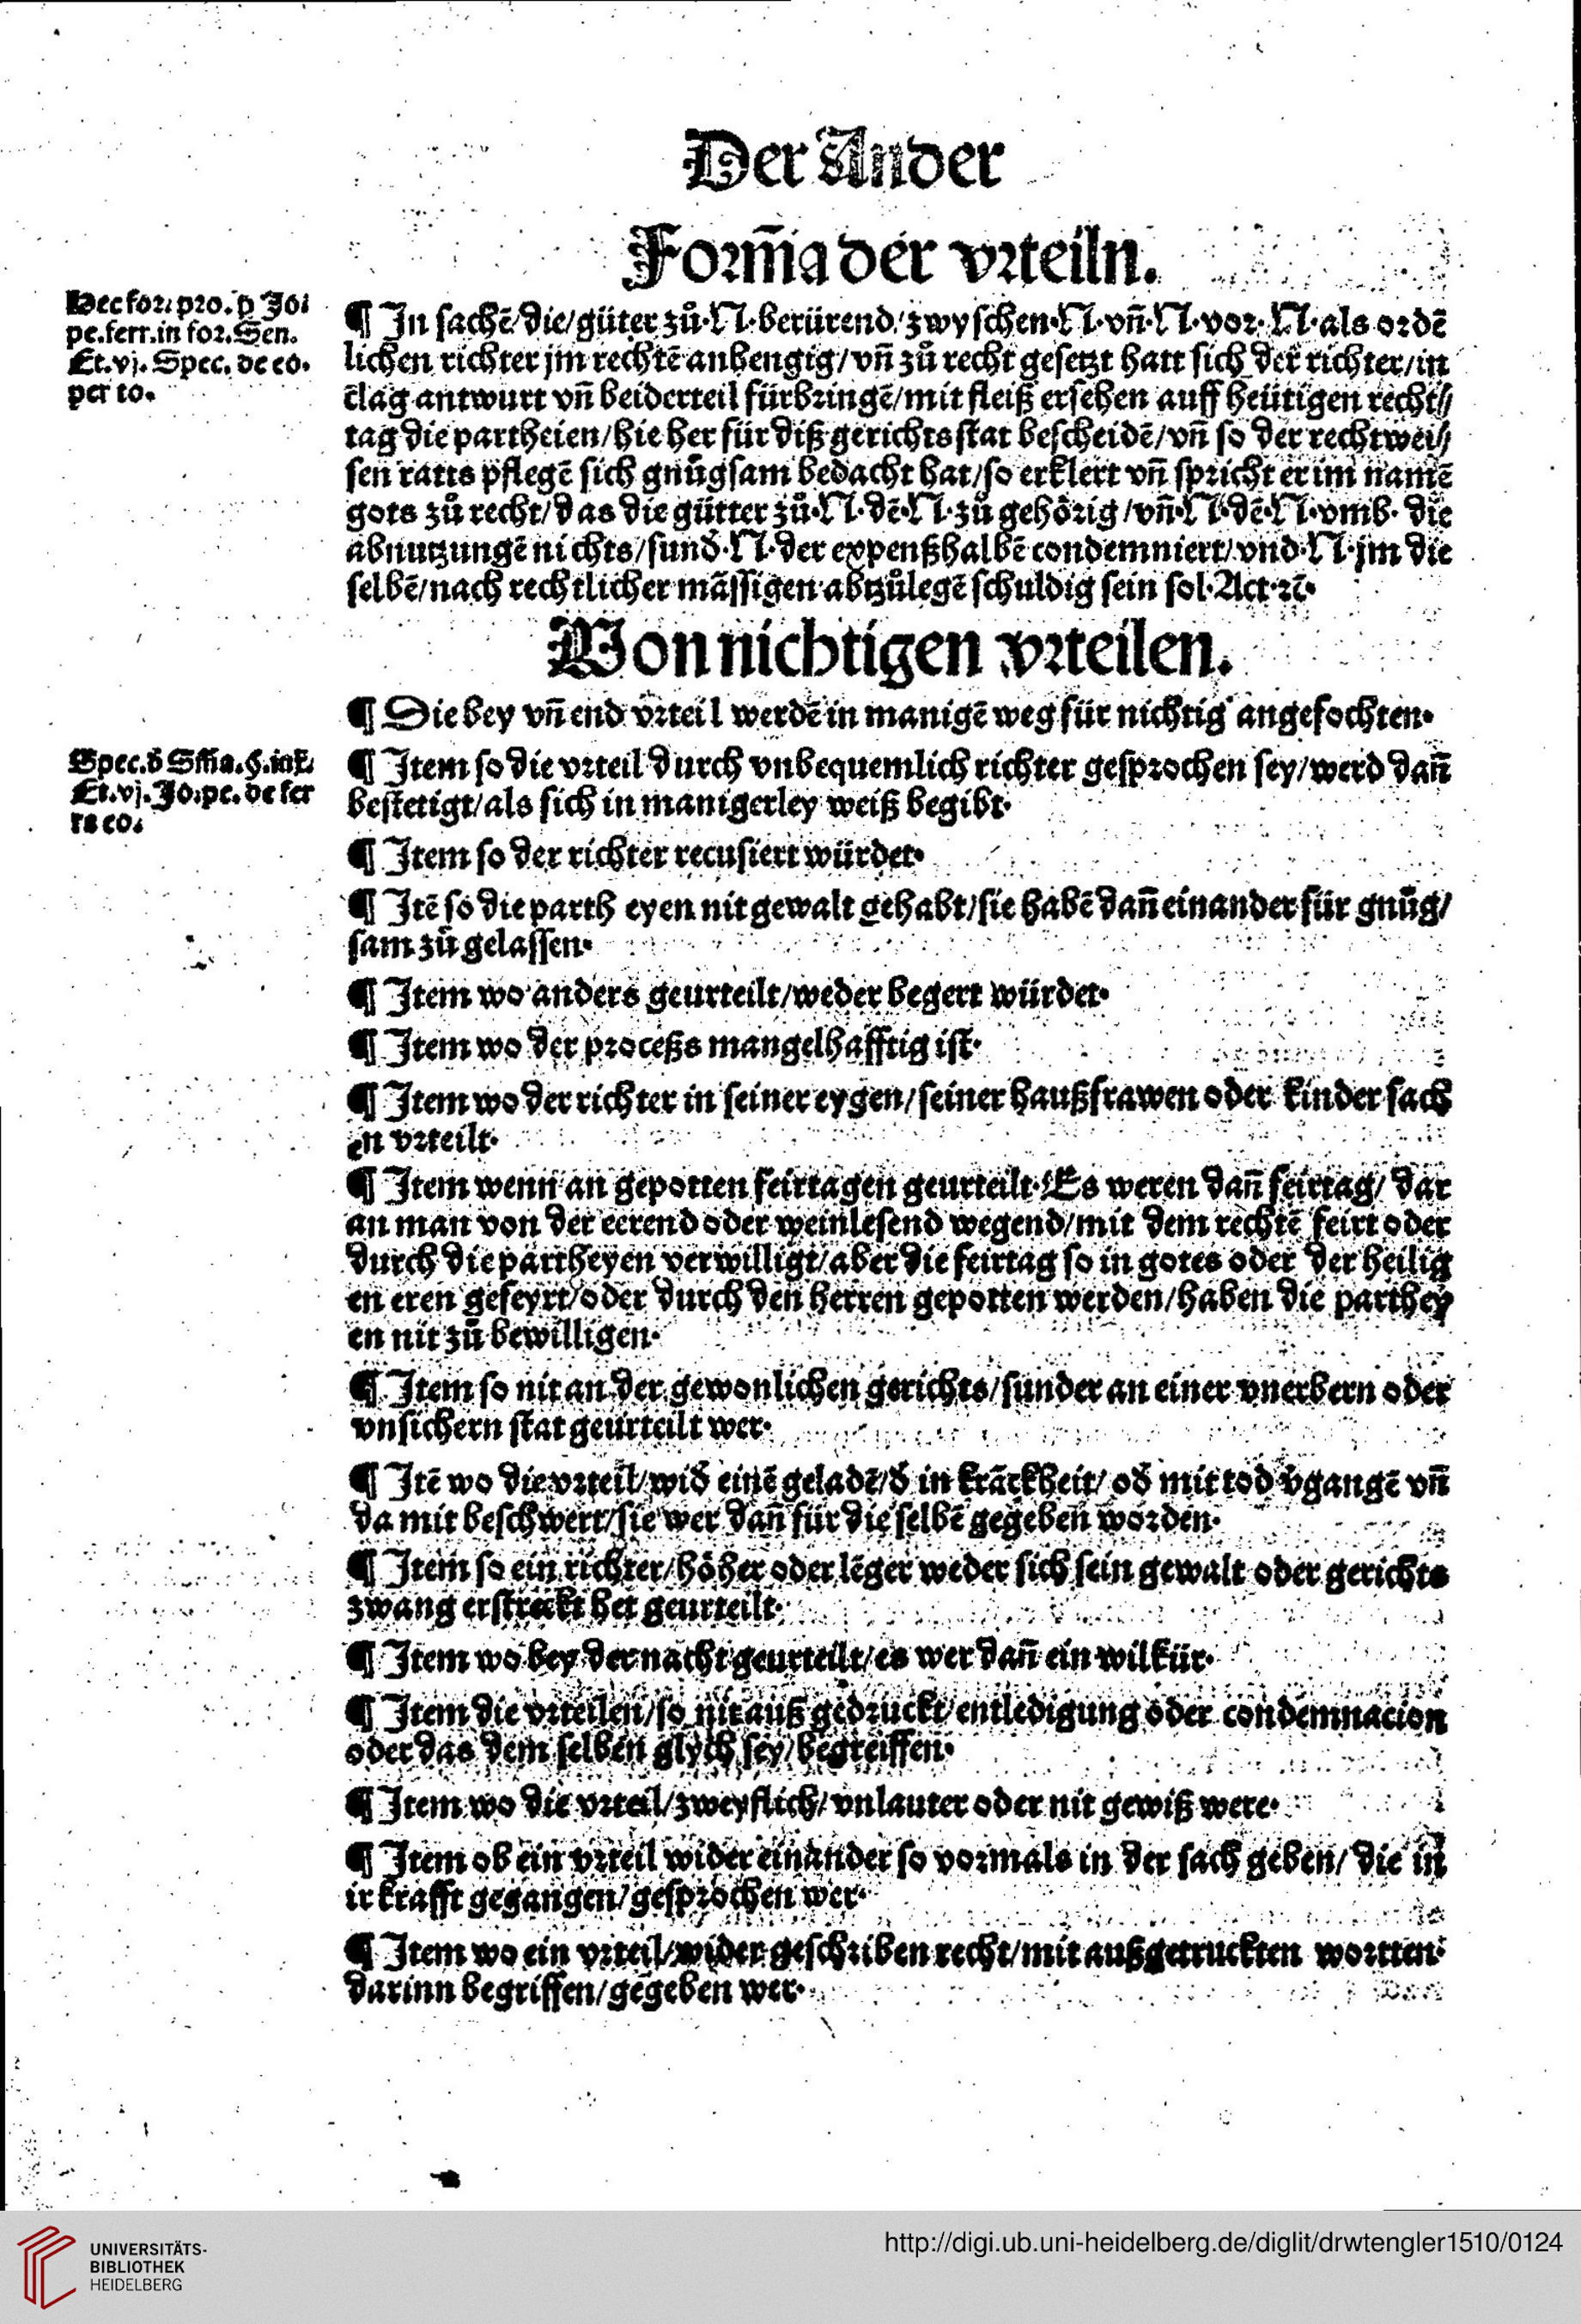 Der Ander
Form̄a der vrteiln.
Hec for. pro. p̱ Jo.
pe.ferr.in for.Sen.
Et.vj. Spec. de eo.
per to.
¶ Jn sachē/die/güter zů·N·berürend/zwyschen·N·vn̄·N·vor·N·als ordē
lichen richter jm rechtē anhengig/vn̄ zů recht gesetzt hatt sich der richter/in
clag antwurt vn̄ beiderteil fürbringē/mit fleiß ersehen auff heütigen recht⸗
tag die partheien/hie her für diß gerichts stat bescheidē/vn̄ so der recht wei⸗
sen ratts pflegē sich gnůgsam bedacht hat/so erklert vn̄ spricht er im namē
gots zů recht/das die gütter zů·N·dē·N·zů gehörig/vn̄·N·dē·N·vmb· die
abnutzungē nichts/sund·N·der expenß halbē condemniert/vnd·N·jm die
selbē/nach rechtlicher mässigen abtzůlegē schuldig sein sol·Act·ꝛc̄·
Von nichtigen vrteilen.
¶ Die bey vn̄ end vrteil werdē in manigē weg für nichtig angefochten·
Spec.đ Sn̄ia.§.iux.
Et.vj.Jo.pe.de fer
ra co.
¶ Jtem so die vrteil durch vnbequemlich richter gesprochen sey/werd dan̄
bestetigt/als sich in manigerley weiß begibt·
¶ Jtem so der richter recusiert würdet·
¶ Jtē so die parth eyen nit gewalt gehabt/sie habē dan̄ einander für gnůg/
sam zů gelassen·
¶ Jtem wo anders geurteilt/weder begert würdet·
¶ Jtem wo der proceßs mangelhafftig ist·
¶ Jtem wo der richter in seiner eygen/seiner haußfrawen oder kinder sach
en vrteilt·
¶ Jtem wenn an gepotten feirtagen geurteilt·Es weren dan̄ feirtag/ dar
an man von der eerend oder weinlesend wegend/mit dem rechtē feirt oder
durch die partheyen verwilligt/aber die feirtag so in gotes oder der heilig
en eren gefeyrt/oder durch den herren gepotten werden/haben die parthey
en nit zů bewilligen·
¶ Jtem so nit an der gewonlichen gerichts/sunder an einer vnerbern oder
vnsichern stat geurteilt wer·
¶ Jtē wo die vrteil/wiđ einē geladē/đ in krāckheit/ ođ mit tod v̄gangē vn̄
da mit beschwert/sie wer dan̄ für die selbē gegeben worden·
¶ Jtem so ein richter/höher oder lēger weder sich sein gewalt oder gerichts
zwang erstreckt het geurteilt·
¶ Jtem wo bey der nacht geurteilt/es wer dan̄ ein wilkür·
¶ Jtem die vrteilen/so nit auß gedruckt/entledigung oder condemnacion
oder das dem selben glych sey/begreiffen·
¶ Jtem wo die vrteil/zweyflich/vnlauter oder nit gewiß were·
¶ Jtem ob ein vrteil wider einander so vormals in der sach geben/ die in
ir krafft gegangen/gesprochen wer·
¶ Jtem wo ein vrteil/wider geschriben recht/mit außgetruckten wortten·
darinn begriffen/gegeben wer·
UNIVERSITÄTS-
BIBLIOTHEK
HEIDELBERG
http://digi.ub.uni-heidelberg.de/diglit/drwtengler1510/0124